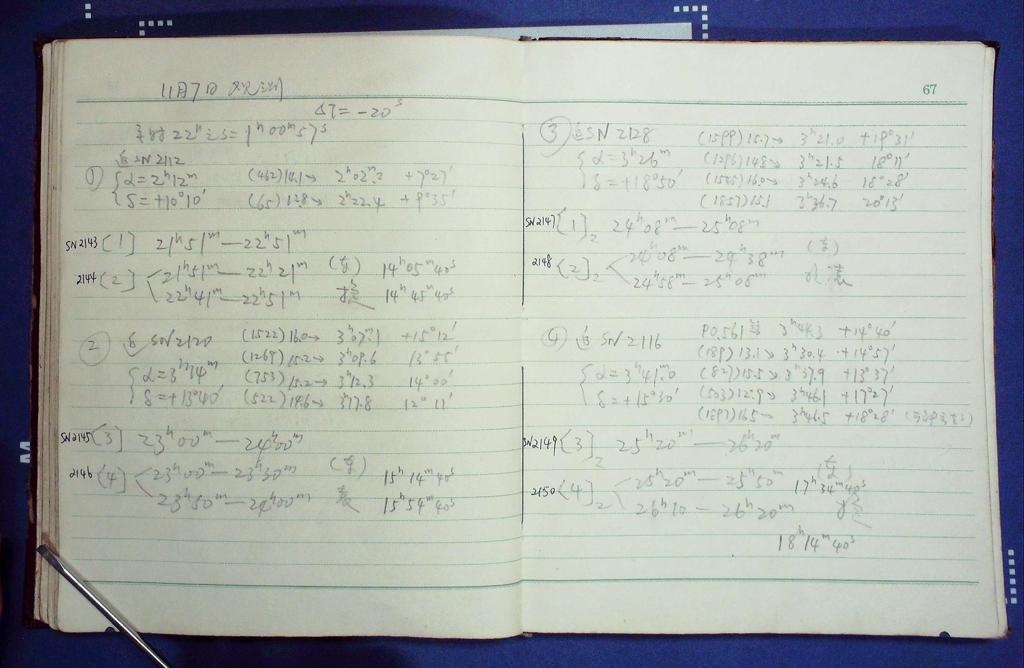 11月7日 观测
ΔT = -20ˢ
22ʰ S = 1ʰ00ᵐ57ˢ
追SN2112
① α = 2ʰ12ᵐ (462)14.1→ 2ʰ02ᵐ.2 +7°27′
δ = +10°10′ (65)12.8→ 2ʰ22.4 +9°35′
SN2143 [1] 21ʰ51ᵐ—22ʰ51ᵐ
2144 [2] 21ʰ51ᵐ—22ʰ21ᵐ 14ʰ05ᵐ40ˢ
22ʰ41ᵐ—22ʰ51ᵐ 14ʰ45ᵐ40ˢ
② 追SN2120 (1522)16.0→ 3ʰ07ᵐ.1 +15°12′
(1269)15.2→ 3ʰ09.6 13°55′
α = 3ʰ14ᵐ (753)15.2→ 3ʰ12.3 14°00′
δ = +13°40′ (522)14.6→ 3ʰ17.8 12°11′
SN2145 [3] 23ʰ00ᵐ—24ʰ00ᵐ
2146 [4] 23ʰ00ᵐ—23ʰ30ᵐ 15ʰ14ᵐ40ˢ
23ʰ50ᵐ—24ʰ00ᵐ 15ʰ54ᵐ40ˢ
67
③ 追SN2128 (1599)15.7→ 3ʰ21.0 +19°31′
α = 3ʰ26ᵐ (1296)14.8→ 3ʰ21.5 18°11′
δ = +18°50′ (1545)16.0→ 3ʰ24.6 18°28′
(1857)15.1 3ʰ36.7 20°13′
SN2147 [1]₂ 24ʰ08ᵐ—25ʰ08ᵐ
2148 [2]₂ 24ʰ08ᵐ—24ʰ38ᵐ
24ʰ58ᵐ—25ʰ08ᵐ
④ 追SN2116 P0.561 3ʰ44.3 +14°40′
(189)13.1→ 3ʰ30.4 +14°57′
α = 3ʰ41ᵐ.0 (827)15.5→ 3ʰ37.9 +13°37′
δ = +15°30′ (503)12.9→ 3ʰ46.1 +17°27′
(1897)16.5→ 3ʰ46.5 +18°28′
SN2149 [3]₂ 25ʰ20ᵐ—26ʰ20ᵐ
2150 [4]₂ 25ʰ20ᵐ—25ʰ50ᵐ 17ʰ34ᵐ40ˢ
26ʰ10—26ʰ20ᵐ
18ʰ14ᵐ40ˢ